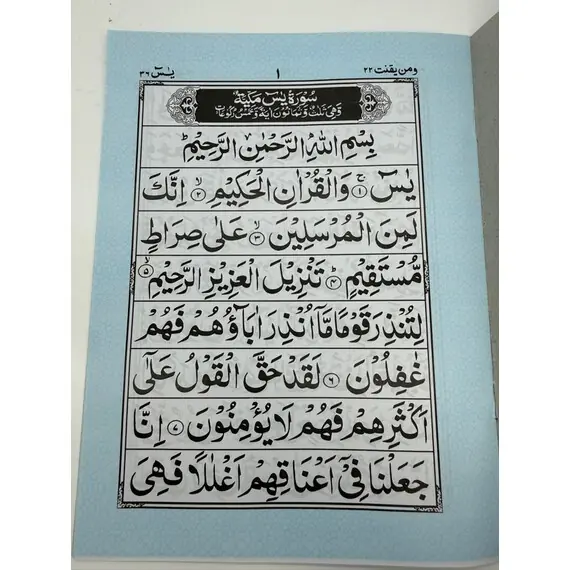 ومن يقنت ٢٢ ١ يٰسٓ ٣٦
سُوْرَةُ يٰسٓ مَكِّيَّةٌ
وَّهِيَ ثَلٰثٌ وَّثَمَانُوْنَ اٰيَةً وَّخَمْسُ رُكُوْعَاتٍ
بِسْمِ اللّٰهِ الرَّحْمٰنِ الرَّحِيْمِ ؕ
يٰسٓ ۚ ﴿١﴾ وَالْقُرْاٰنِ الْحَكِيْمِ ۙ ﴿٢﴾ اِنَّكَ
لَمِنَ الْمُرْسَلِيْنَ ۙ ﴿٣﴾ عَلٰى صِرَاطٍ
مُّسْتَقِيْمٍ ؕ ﴿٤﴾ تَنْزِيْلَ الْعَزِيْزِ الرَّحِيْمِ ۙ ﴿٥﴾
لِتُنْذِرَ قَوْمًا مَّاۤ اُنْذِرَ اٰبَآؤُهُمْ فَهُمْ
غٰفِلُوْنَ ﴿٦﴾ لَقَدْ حَقَّ الْقَوْلُ عَلٰۤى
اَكْثَرِهِمْ فَهُمْ لَا يُؤْمِنُوْنَ ﴿٧﴾ اِنَّا
جَعَلْنَا فِيْۤ اَعْنَاقِهِمْ اَغْلٰلًا فَهِيَ